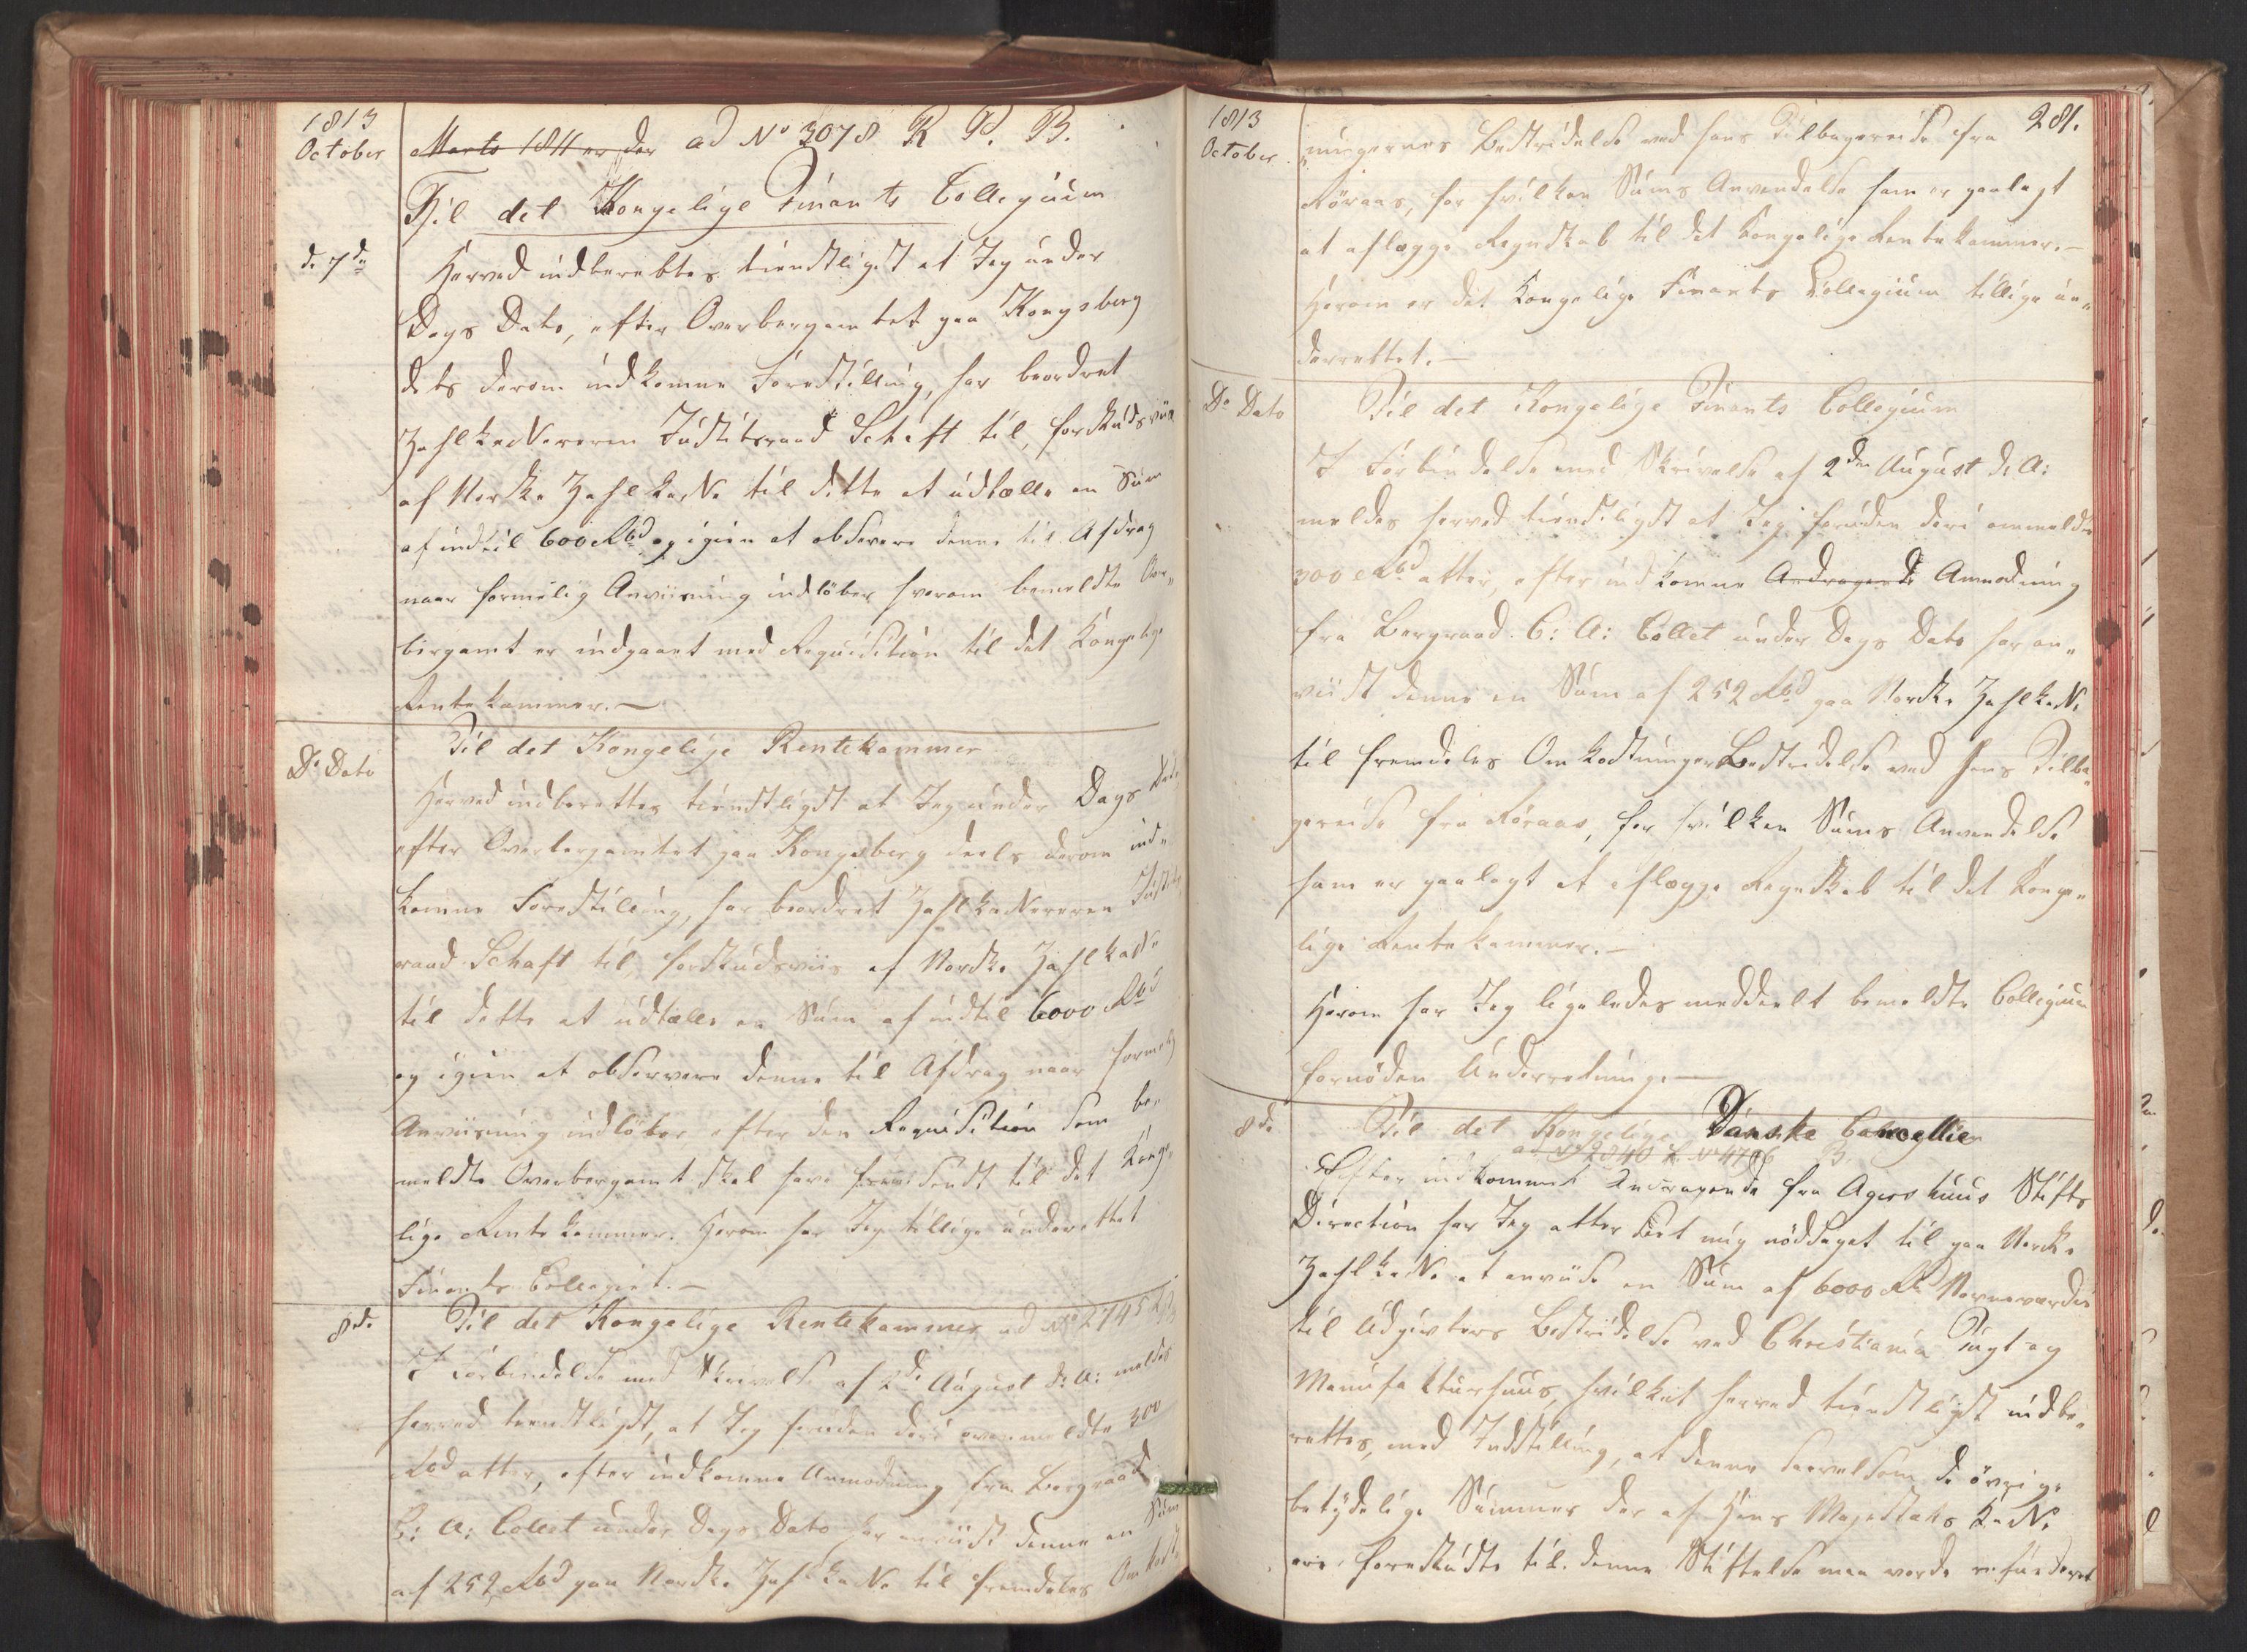 1813
October
Marts 1811 er der ad No 3078 R P. B.
Til det Kongelige Finants Collegium
d. 7de
Herved indberettes tienstligst at Jeg under
Dags Dato, efter Overbergamtet paa Kongsberg
dets derom indkomne Forestilling, har beordret
Zahlkasserern Justitsraad Schaft til, forskudsviis
af Norske Zahlkasse til dette at udtælle en Sum
af indtil 600 Rbd og igien at observere denne til Afdrag
naar formelig Anviisning indløber hvorom bemeldte Over„
bergamt er indgaaet med Requisition til det Kongelige
Rentekammer.—
Do Dato
Til det Kongelige Rentekammer
Herved indberettes tienstligst at Jeg under Dags Dato
efter Overbergamtet paa Kongsberg deels derom ind„
komne Forestilling, har beordret Zahlkassereren Justits
raad Schaft til, forskudsviis af Norske Zahlkasse
til dette at udtælle en Sum af indtil 6000 Rbd
og igien at observere denne til Afdrag naar formelig
Anviisning indløber efter den Requisition som be„
meldte Overbergamt skal have indsendt til det Konge„
lige Rentekammer. Herom har Jeg tillige underettet
Finants Collegiet.—
8d.
Til det Kongelige Rentekammer ad No 2745
I Forbindelse med Skrivelse af 2de August d: A: meldes
herved tienstligst, at Jeg foruden deri ommeldte 300
Rbd atter, efter indkomne Anmodning fra Bergraad
C: A: Collet under Dags Dato har anviist denne en Sum
af 252 Rbd paa Norske Zahlkasse til fremdeles Omkost„
1813
October.
281.
ningernes Bestridelse ved hans Tilbagereise fra
Røraas, for hvilken Sums Anvendelse ham er paalagt
at aflægge Regnskab til det Kongelige Rentekammer.—
Herom er det Kongelige Finants Collegium tillige un„
derrettet.—
Do Dato
Til det Kongelige Finants Collegium
I Forbindelse med Skrivelse af 2den August d: A:
meldes herved tienstligst at Jeg foruden deri ommeldte
300 Rbd atter, efter indkomne Andragende Anmodning
fra Bergraad C: A: Collet under Dags Dato har an„
viist denne en Sum af 252 Rbd paa Norske Zahlkasse
til fremdeles Omkostninger Bestridelse ved hans Tilba„
gereise fra Røraas, for hvilken Sums Anvendelse
ham er paalagt at aflægge Regnskab til det Konge„
lige Rentekammer.—
Herom har Jeg ligeledes meddeelt bemeldte Collegium
fornøden Underretning.—
8de
Til det Kongelige Danske Cancellie
ad No 2840 No 4706 B.
Efter indkommet Andragende fra Agershuus Stifts
Direction har Jeg atter seet mig nødsaget til paa Norske
Zahlkasse at anvise en Sum af 6000 Rbd Navneværdie
til Udgivters Bestridelse ved Christiania Tugt og
Manufakturhuus, hvilket herved tienstligst indbe„
rettes, med Indstilling, at denne saavelsom de øvrige
betydelige Summer der af Hans Majestæts Kasse
ere forskudte til denne Stiftelse maa vorde refunderet